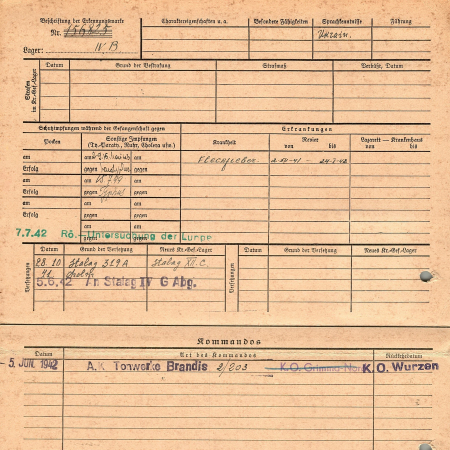 Beschriftung der Erkennungsmarke
Nr. 156825
Lager: IV B
Charaktereigenschaften u.a.
Besondere Fähigkeiten
Sprachkenntnisse
Führung
Ukrain.
Strafen im Kr.-Gef.-Lager
Datum
Grund der Bestrafung
Strafmaß
Verbüßt, Datum
Schutzimpfungen während der Gefangenschaft gegen
Erkrankungen
Pocken
Sonstige Impfungen
(Ty.-Paraty., Ruhr, Cholera usw.)
Krankheit
Revier
von bis
Lazarett — Krankenhaus
von bis
am am am
Erfolg gegen gegen
am am am
Erfolg gegen gegen
am am
Erfolg gegen gegen
am am
gegen gegen
Fleckfieber
7.7.42 Rö.-Untersuchung der Lunge
Versetzungen
Datum
Grund der Versetzung
Neues Kr.-Gef.-Lager
Versetzungen
Datum
Grund der Versetzung
Neues Kr.-Gef.-Lager
28.10 Stalag 319 A
41 Cholm
5.6.42 An Stalag IV G Abg.
Kommandos
Datum
Art des Kommandos
Rückkehrdatum
- 5. JUN. 1942
A.K Tonwerke Brandis 2/203
K.O. Wurzen